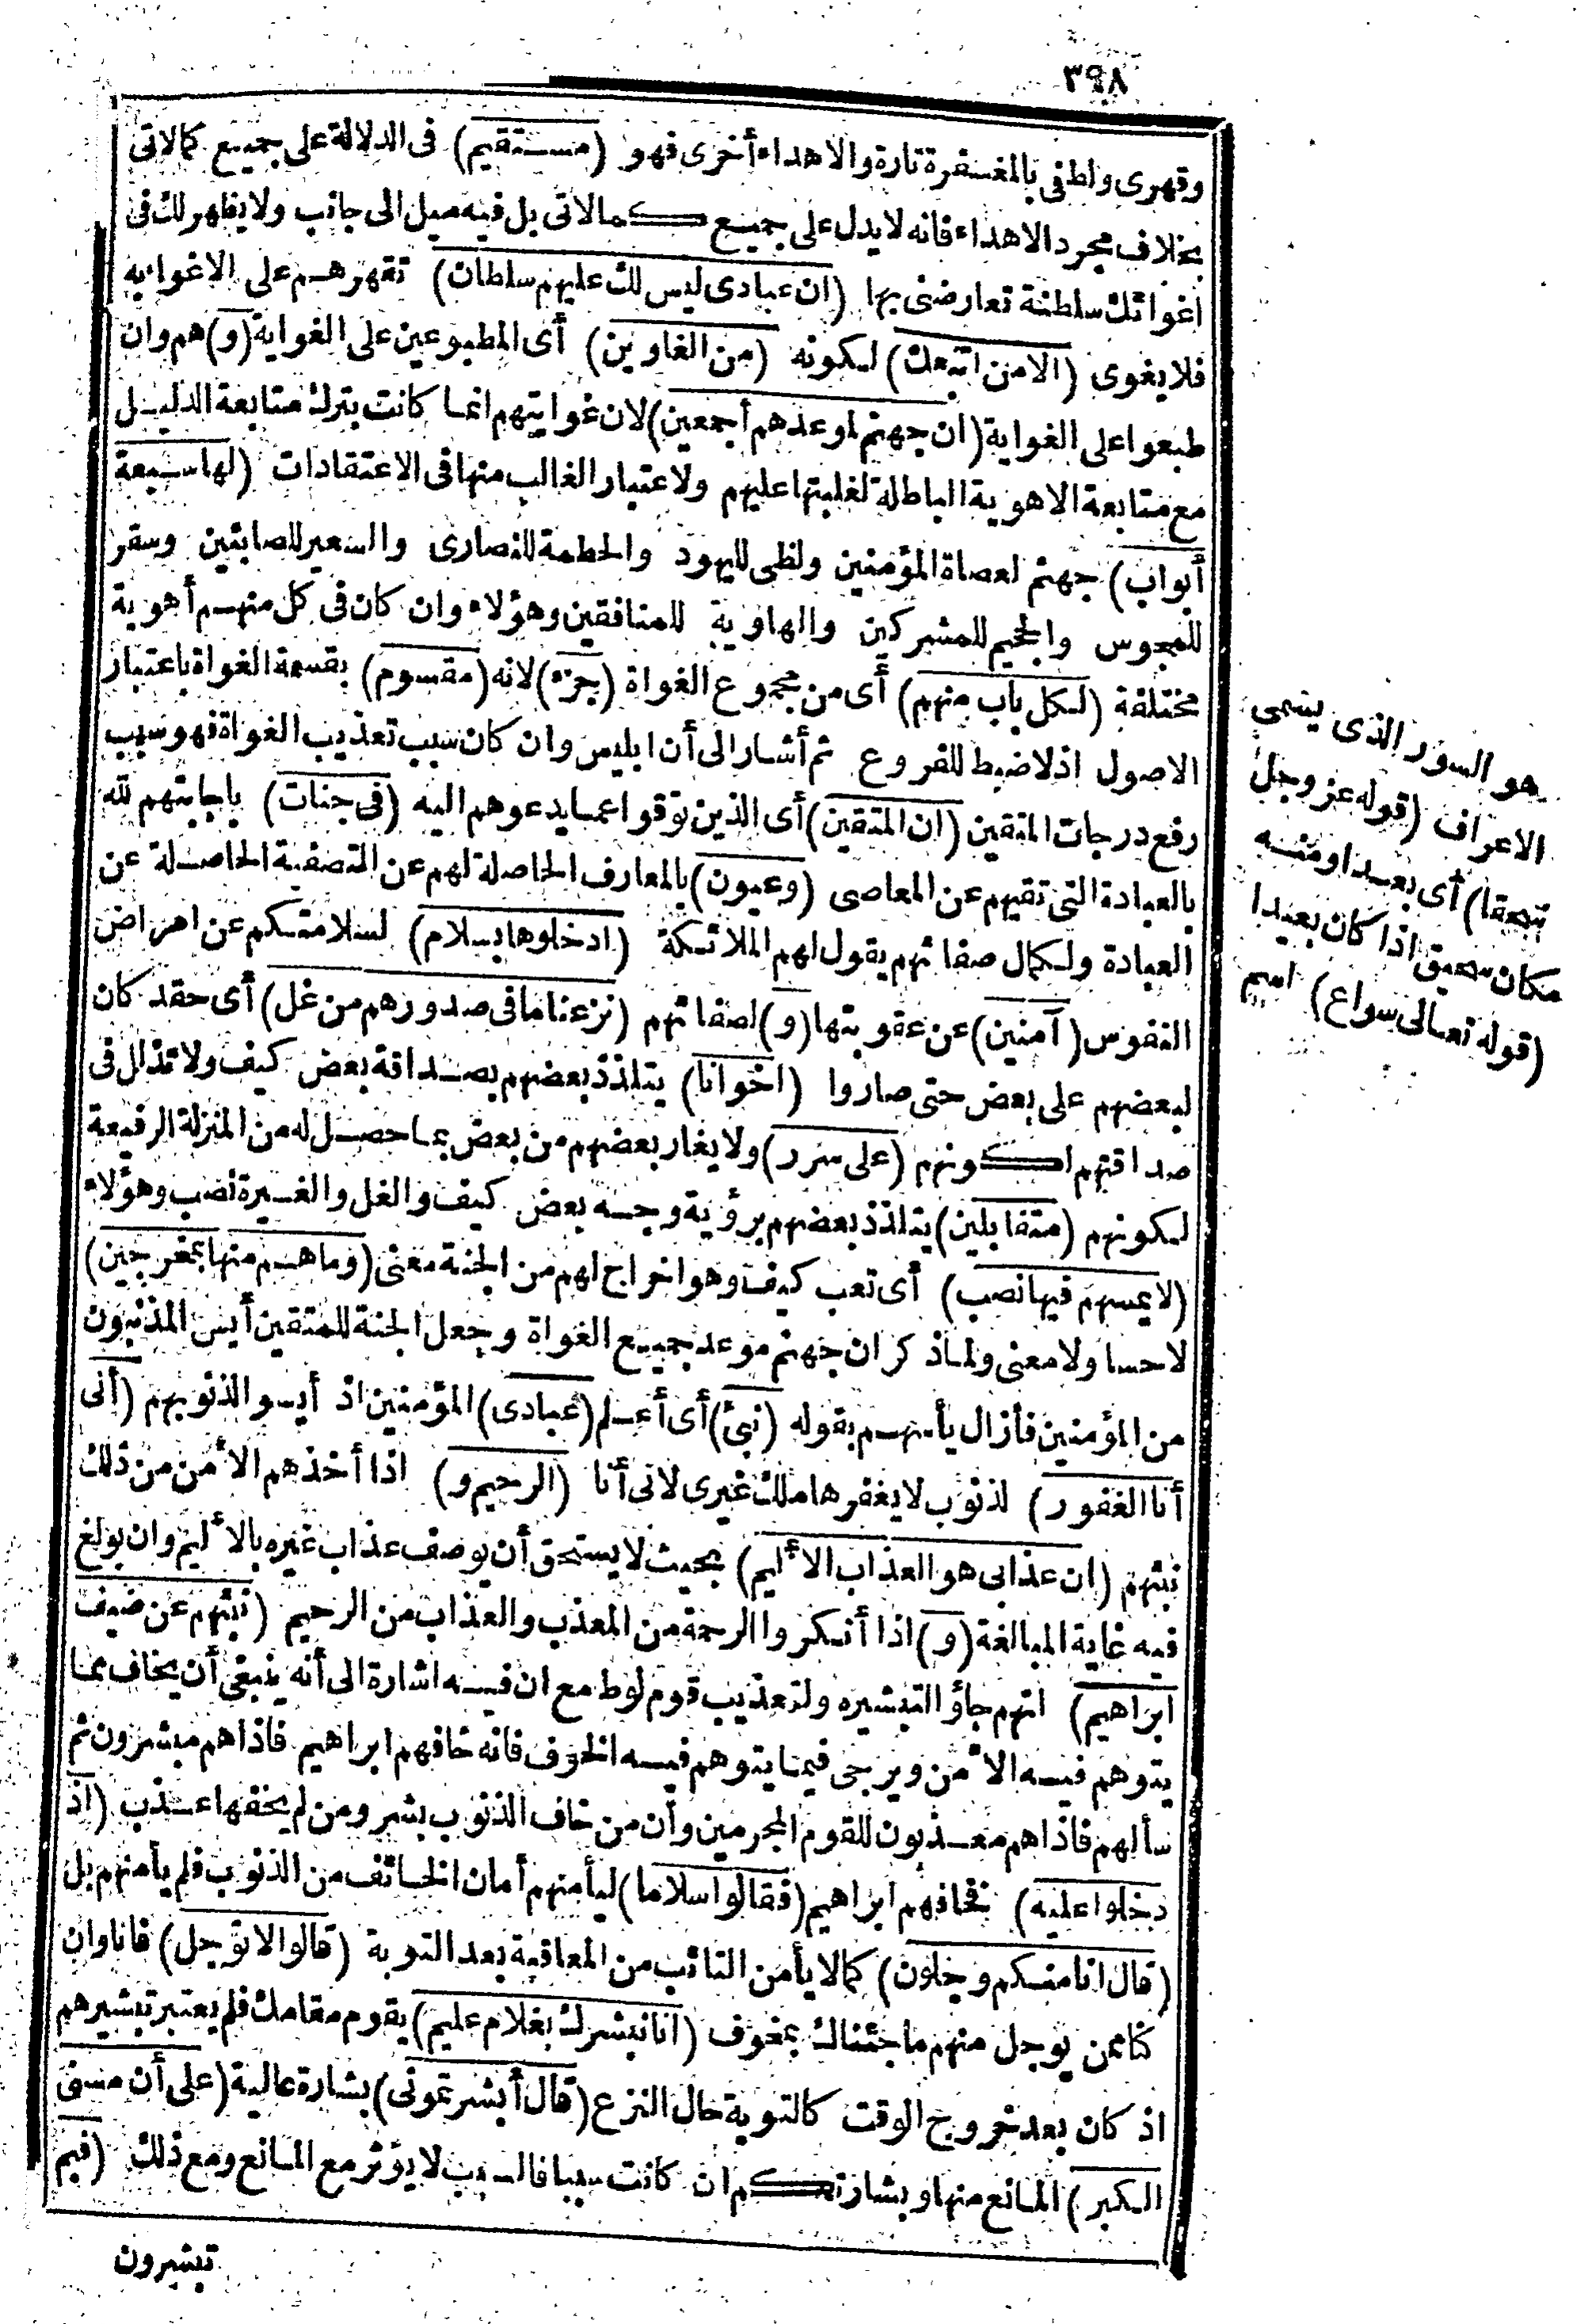 ٣٩٨
وقهرى ولطفى بالمغفرة تارة والاهداء أخرى فهو (مستقيم) فى الدلالة على جميع كمالاتى
بخلاف مجرد الاهداء فانه لا يدل على جميع كمالاتى بل فيه ميل الى جانب ولا يظهر لك فى
اغوائك سلطنة تعارضنى بها (ان عبادى ليس لك عليهم سلطان) تقهرهم على الاغواء به
فلا يغوى (الا من اتبعك) لكونه (من الغاوين) أى المطبوعين على الغواية (و) هم وان
طبعوا على الغواية (ان جهنم لموعدهم أجمعين) لان غوايتهم انما كانت بترك متابعة الدليل
مع متابعة الاهوية الباطلة لغلبتها عليهم ولاعتبار الغالب منها فى الاعتقادات (لها سبعة
أبواب) جهنم لعصاة المؤمنين ولظى لليهود والحطمة للنصارى والسعير للصابئين وسقر
للمجوس والجحيم للمشركين والهاوية للمنافقين وهؤلاء وان كان فى كل منهم أهوية
مختلفة (لكل باب منهم) أى من مجموع الغواة (جزء) لانه (مقسوم) بقسمة الغواة باعتبار
الاصول اذ لا ضبط للفروع ثم أشار الى أن ابليس وان كان سبب تعذيب الغواة فهو سبب
رفع درجات المتقين (ان المتقين) أى الذين توقوا عما يدعوهم اليه (فى جنات) باجابتهم لله
بالعبادة التى تقيهم عن المعاصى (وعيون) بالمعارف الحاصلة لهم عن التصفية الحاصلة عن
العبادة ولكمال صفائهم يقول لهم الملائكة (ادخلوها بسلام) لسلامتكم عن امراض
النفوس (آمنين) عن عقوبتها (و) لصفائهم (نزعنا ما فى صدورهم من غل) أى حقد كان
لبعضهم على بعض حتى صاروا (اخوانا) يتلذذ بعضهم بصداقة بعض كيف ولا تذال فى
صداقتهم لكونهم (على سرر) ولا يغار بعضهم من بعض بما حصل له من المنزلة الرفيعة
لكونهم (متقابلين) يتلذذ بعضهم برؤية وجه بعض كيف والغل والغيرة نصب وهؤلاء
(لا يمسهم فيها نصب) أى تعب كيف وهو اخراج لهم من الجنة معنى (وما هم منها بمخرجين)
لا حسا ولا معنى ولما ذكر ان جهنم موعد جميع الغواة وجعل الجنة للمتقين أيس المذنبون
من المؤمنين فأزال يأسهم بقوله (نبئ) أى أعلم (عبادى) المؤمنين اذ أيسوا لذنوبهم (أنى
أنا الغفور) لذنوب لا يغفرها ملك غيرى لانى أنا (الرحيم و) اذا أخذهم الأمن من ذلك
نبئهم (ان عذابى هو العذاب الأليم) بحيث لا يستحق أن يوصف عذاب غيره بالأليم وان بولغ
فيه غاية المبالغة (و) اذا أنكروا الرحمة من المعذب والعذاب من الرحيم (نبئهم عن ضيف
ابراهيم) انهم جاؤا لتبشيره ولتعذيب قوم لوط مع ان فيه اشارة الى أنه ينبغى أن يخاف مما
يتوهم فيه الأمن ويرجى فيما يتوهم فيه الخوف فانه خافهم ابراهيم فاذا هم مبشرون ثم
سألهم فاذا هم معذبون للقوم المجرمين وأن من خاف الذنوب بشر ومن لم يخفها عذب (اذ
دخلوا عليه) فخافهم ابراهيم (فقالوا سلاما) ليأمنهم أمان الخائف من الذنوب فلم يأمنهم بل
(قال انا منكم وجلون) كما لا يأمن التائب من المعاقبة بعد التوبة (قالوا لا توجل) فانا وان
كنا ممن يوجل منهم ما جئناك بمخوف (انا نبشرك بغلام عليم) يقوم مقامك فلم يعتبر تبشيرهم
اذ كان بعد خروج الوقت كالتوبة حال النزع (قال أبشرتمونى) بشارة عالية (على أن مسنى
الكبر) المانع منها وبشارتكم ان كانت سببا فالسبب لا يؤثر مع المانع ومع ذلك (فبم
تبشرون
هو السور الذى يسمى
الاعراف (قوله عز وجل
سحقا) أى بعدا ومنه
مكان سحيق اذا كان بعيدا
(قوله تعالى سواع) اسم